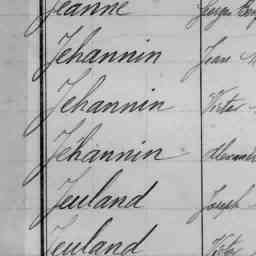 Jeanne
Jehannin Jean
Jehannin Victor
Jehannin Alexandre
Jeuland Joseph
Jeuland Victor